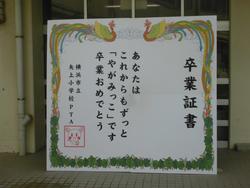 卒業証書
あなたは
これからもずっと
「やがみっこ」です
卒業おめでとう
横浜市立
矢上小学校PTA